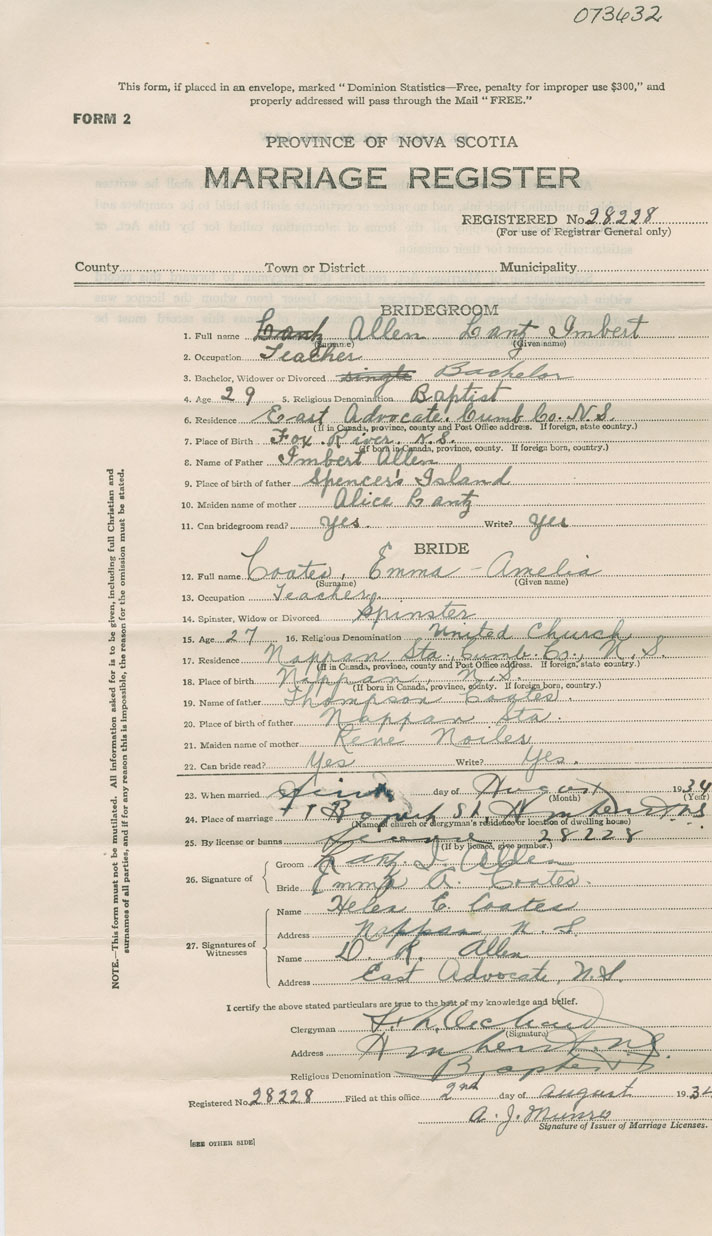 073632
This form, if placed in an envelope, marked "Dominion Statistics—Free, penalty for improper use $300," and
properly addressed will pass through the Mail "FREE."
FORM 2
PROVINCE OF NOVA SCOTIA
MARRIAGE REGISTER
REGISTERED No. 28228
(For use of Registrar General only)
County Town or District Municipality
BRIDEGROOM
1. Full name Lantz Allen Lantz Imbert
(Surname) (Given name)
2. Occupation Teacher
3. Bachelor, Widower or Divorced single Bachelor
4. Age 29 5. Religious Denomination Baptist
6. Residence East Advocate. Cumb. Co. N.S.
(If in Canada, province, county and Post Office address. If foreign, state country.)
7. Place of Birth Fox River, N.S.
(If born in Canada, province, county. If foreign born, country.)
8. Name of Father Imbert Allen
9. Place of birth of father Spencer's Island
10. Maiden name of mother Alice Lantz
11. Can bridegroom read? Yes. Write? Yes
BRIDE
12. Full name Coates, Emma - Amelia
(Surname) (Given name)
13. Occupation Teacher
14. Spinster, Widow or Divorced Spinster
15. Age 27 16. Religious Denomination United Church
17. Residence Nappan Sta., Cumb. Co., N.S.
(If in Canada, province, county and Post Office address. If foreign, state country.)
18. Place of birth Nappan, N.S.
(If born in Canada, province, county. If foreign born, country.)
19. Name of father Thompson Coates.
20. Place of birth of father Nappan Sta.
21. Maiden name of mother Rene Noiles
22. Can bride read? Yes Write? Yes.
23. When married day of August 1934
(Month) (Year)
24. Place of marriage St, Amherst NS
(Name of church or clergyman's residence or location of dwelling house)
25. By license or banns license 28228
(If by licence, give number.)
26. Signature of Groom Lantz I. Allen
Bride Emma A. Coates.
27. Signatures of Witnesses
Name Helen E. Coates
Address Nappan N.S.
Name D. R. Allen
Address East Advocate, N.S.
I certify the above stated particulars are true to the best of my knowledge and belief.
Clergyman
(Signature)
Address Amherst N.S.
Religious Denomination Baptist
Registered No. 28228 Filed at this office 2nd day of august 1934
A. J. Munro
Signature of Issuer of Marriage Licenses.
[SEE OTHER SIDE]
NOTE.—This form must not be mutilated. All information asked for is to be given, including full Christian and
surnames of all parties, and if for any reason this is impossible, the reason for the omission must be stated.